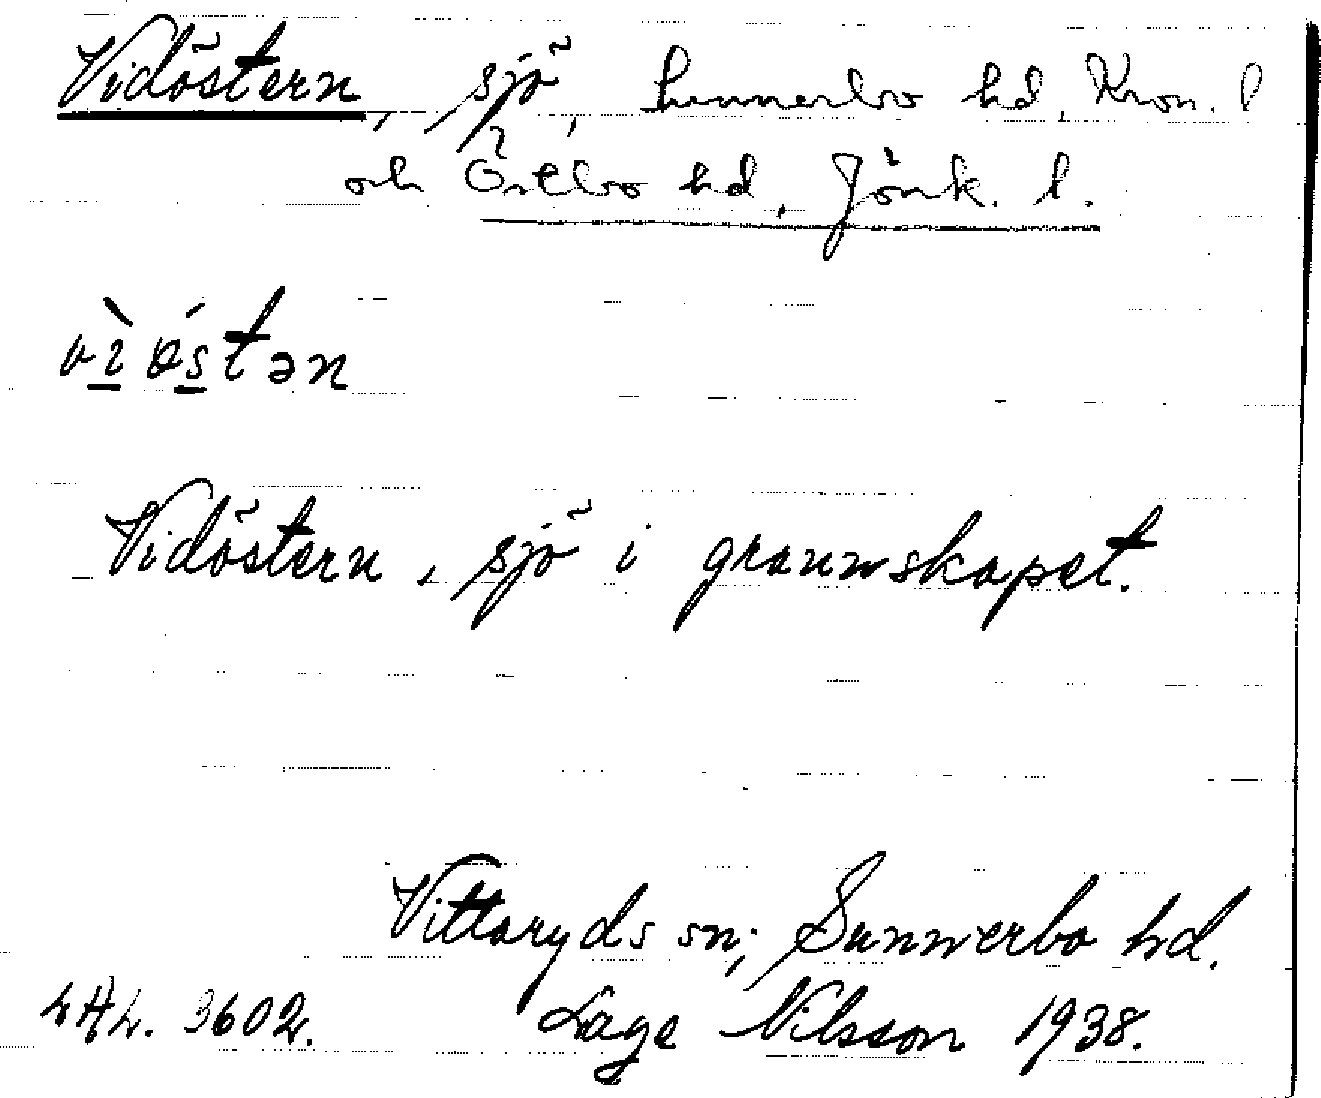 Vidöstern, sjö, Sunnerbo hd, Kron. l
och Östbo hd, Jönk. l.
vìǿstən
Vidöstern, sjö i grannskapet.
Vittaryds sn; Sunnerbo hd.
LAL. 3602. Lage Nilsson 1938.